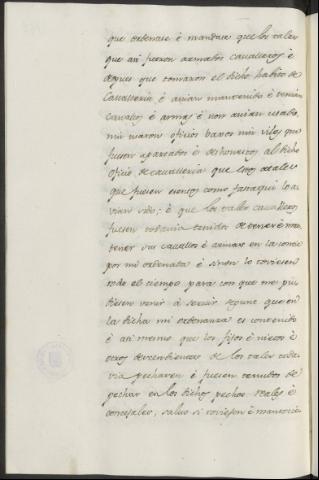 que ordenase è mandase que los tales
que asi fueron armados cavalleros è
despues que tomaron el dicho habito de
Cavalleria è avian mantenido è tenian
Cavallos è armas è non avian usado,
nin usaron oficios baxos nin viles que
fuesen apartados è deshonestos al dicho
oficio de cavalleria que los atales
que fuesen esentos como fasta aqui lo a-
vian sido; è que los tales cavalleros
fuesen todavia tenidos de tener è man-
tener sus cavallos è armas en la
por mi ordenada è si non lo toviesen
todo el tiempo para con que me pu-
diesen venir à servir segund que en
la dicha mi ordenanza es contenido
è asi mesmo que los fijos è nietos è
otros decendientes de los tales toda-
via pecharen è fuesen tenudos de
pechar en los dichos pechos reales è
concejales, salvo si toviesen è mantovie-